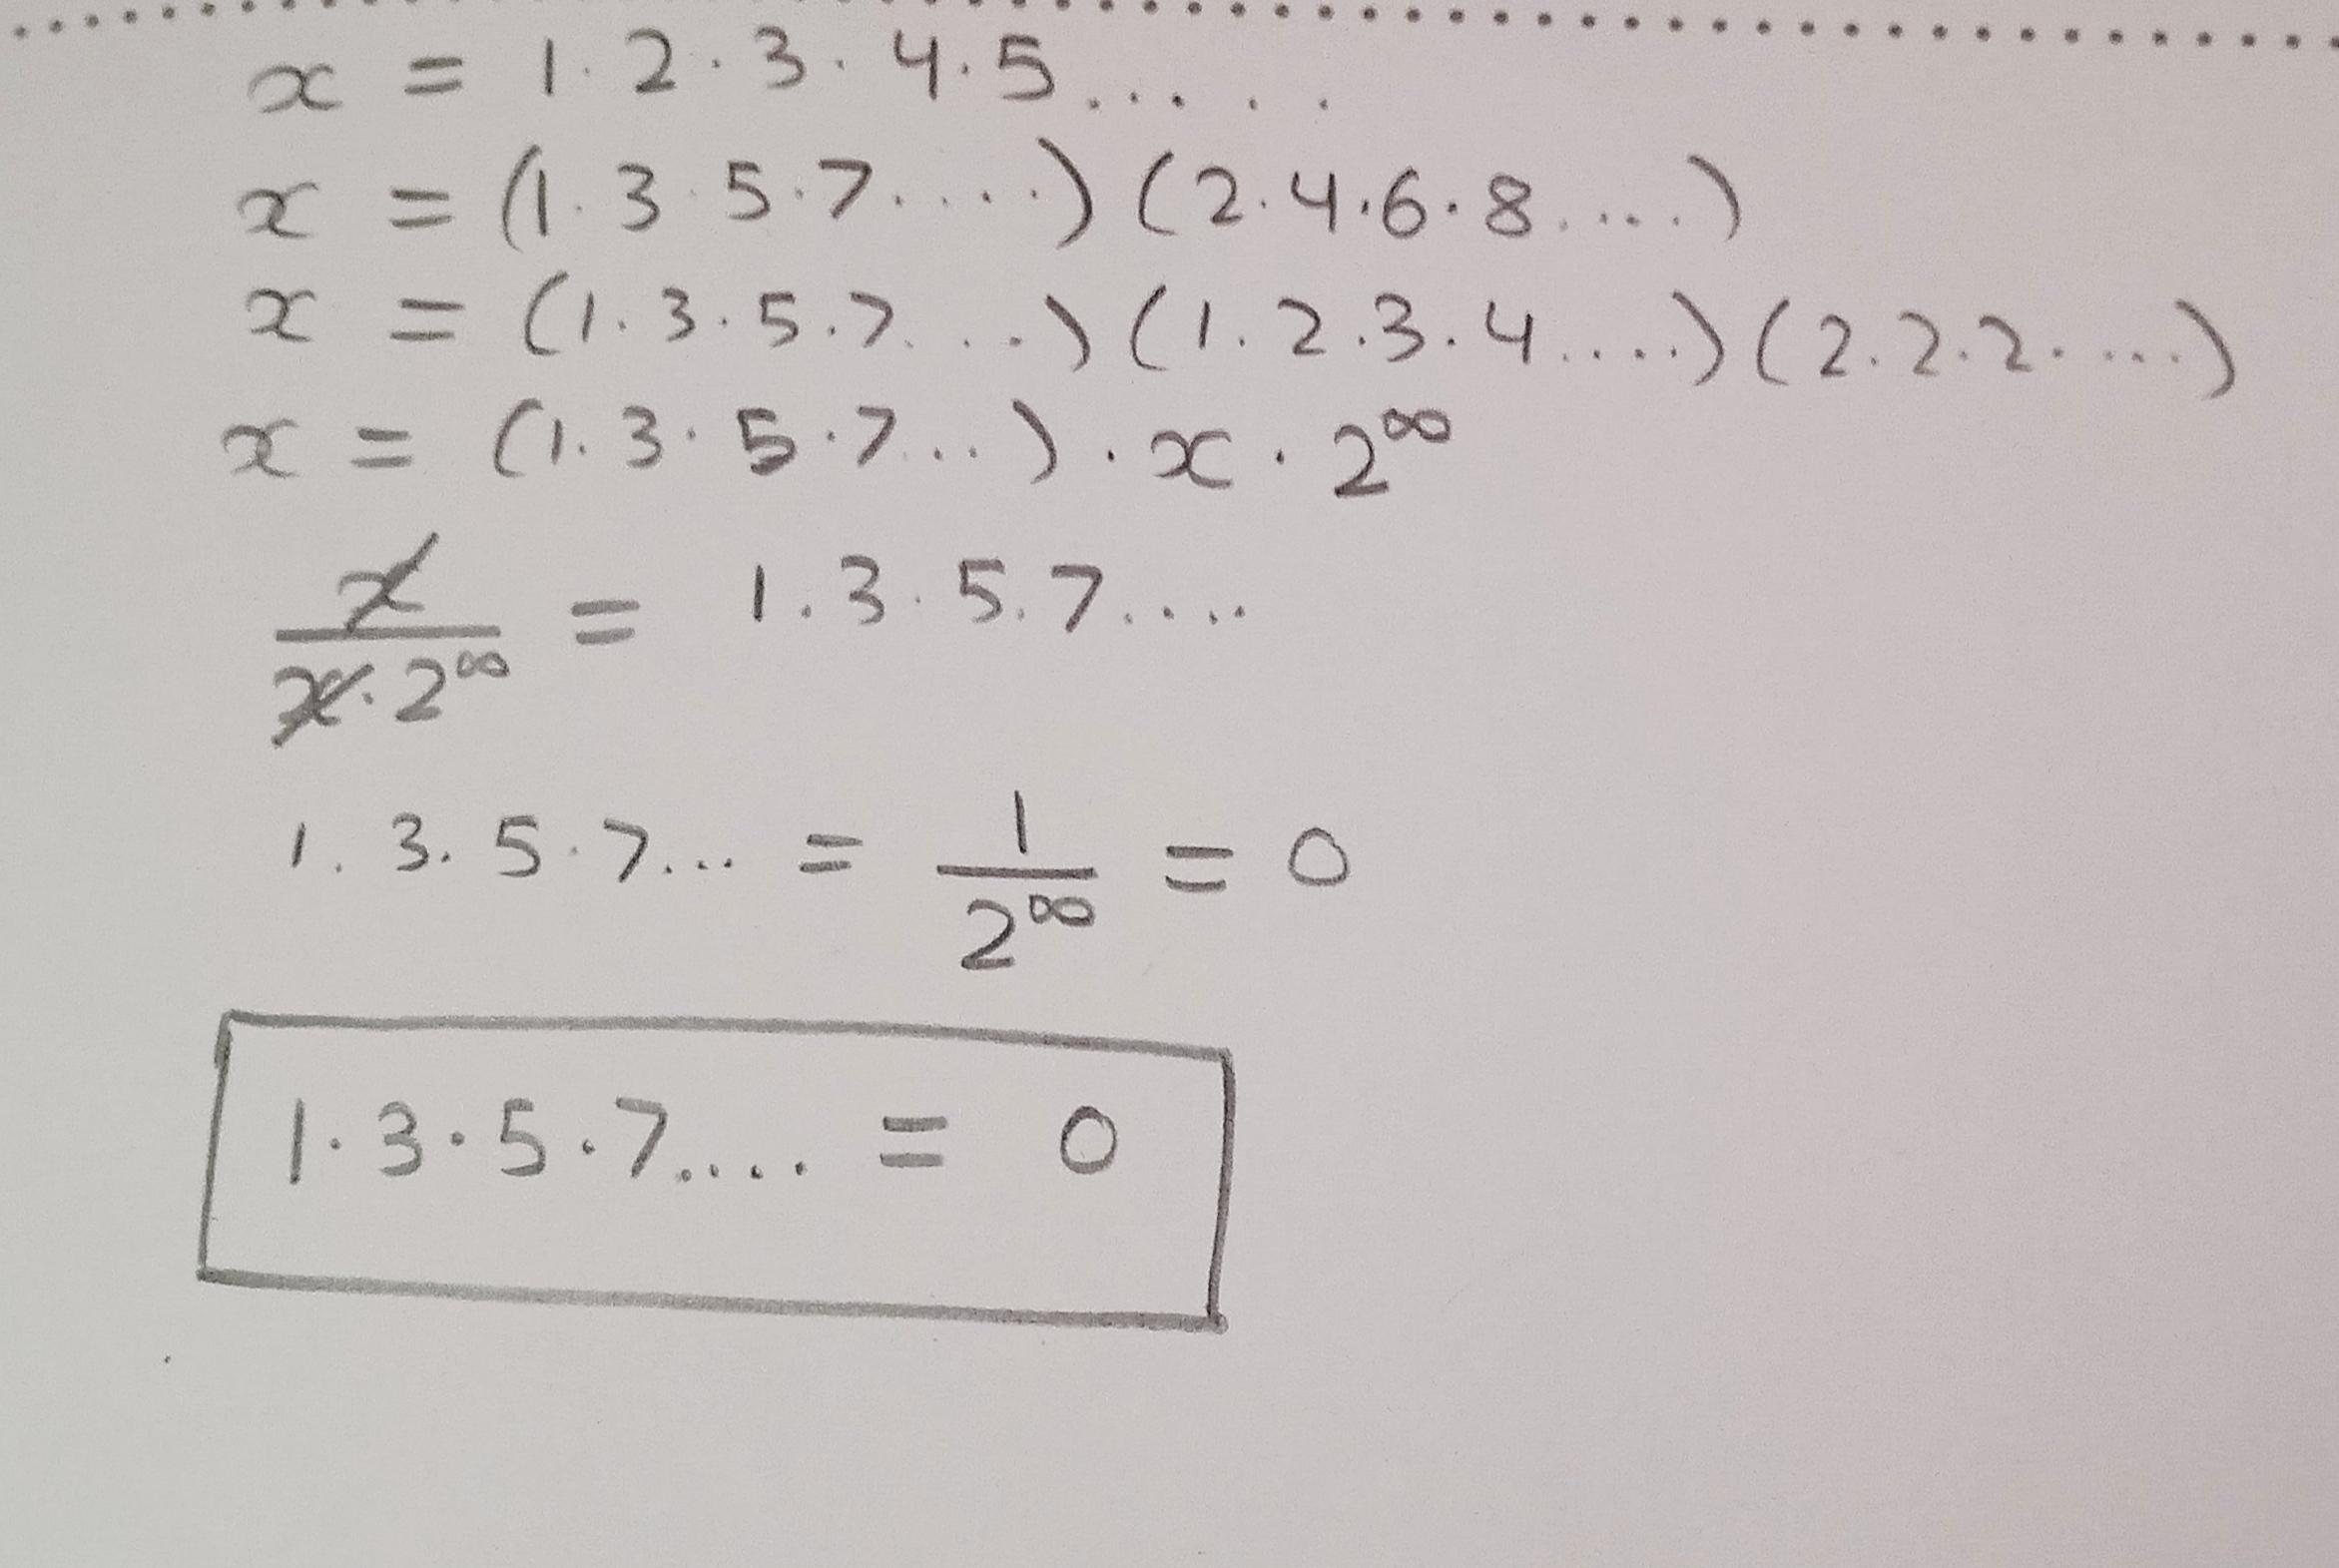 x = 1.2.3.4.5.....
x = (1.3.5.7.....)(2.4.6.8.....)
x = (1.3.5.7....)(1.2.3.4.....)(2.2.2.....)
x = (1.3.5.7...).x.2^∞
x/(x.2^∞) = 1.3.5.7....
1.3.5.7... = 1/2^∞ = 0
1.3.5.7.... = 0